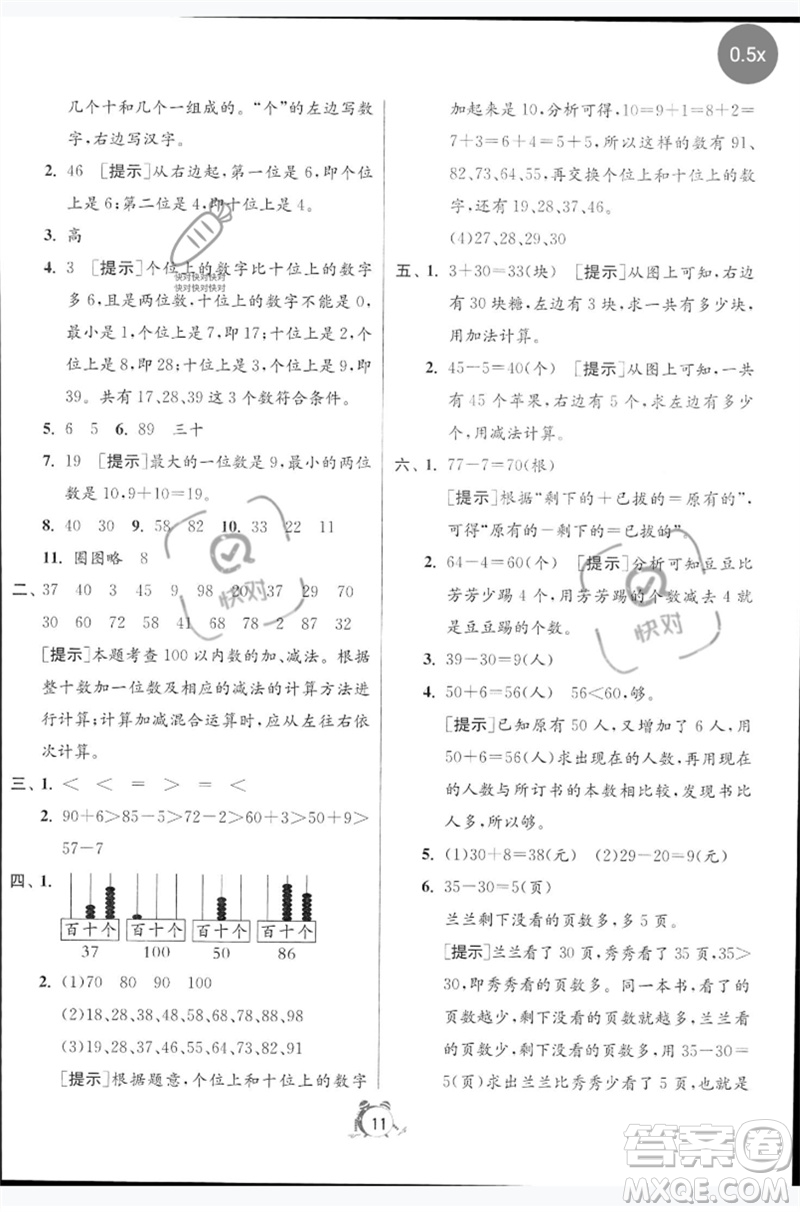 0.5x
几个十和几个一组成的。“个”的左边写数
字，右边写汉字。
2. 46 [提示]从右边起，第一位是 6，即个位
上是 6；第二位是 4，即十位上是 4。
3. 高
4. 3 [提示]个位上的数字比十位上的数字
多 6，且是两位数，十位上的数字不能是 0，
最小是 1，个位上是 7，即 17；十位上是 2，
个位上是 8，即 28；十位上是 3，个位上是 9，即
39。共有 17、28、39 这 3 个数符合条件。
5. 6 5 6. 89 三十
7. 19 [提示]最大的一位数是 9，最小的两位
数是 10，9+10=19。
8. 40 30 9. 58 82 10. 33 22 11
11. 圆图略 8
二、37 40 3 45 9 98 20 37 70
30 60 72 58 41 68 78 2 87 32
[提示]本题考查 100 以内数的加、减法。根据
整十数加一位数及相应的减法的计算方法
进行计算；计算加减混合运算时，应从左往右依
次计算。
三、1. < < = > = <
2. 90+6>85-5>72-2>60+3>50+9>
57-7
四、1.
百十个 百十个 百十个 百十个
37 100 50 86
2. (1)70 80 90 100
(2)18、28、38、48、58、68、78、88、98
(3)19、28、37、46、55、64、73、82、91
[提示]根据题意，个位上和十位上的数字
加起来是 10，分析可得，10=9+1=8+2=
7+3=6+4=5+5，所以可以写的数有 91、
82、73、64、55，再交换个位上和十位上的数
字，还有 19、28、37、46。
(4)27、28、29、30
五、1. 3+30=33(块) [提示]从图上可知，右边
有 30 块糖，左边有 3 块，求一共有多少块，
用加法计算。
2. 45-5=40(个) [提示]从图上可知，一共
有 45 个苹果，右边有 5 个，求左边有多少
个，用减法计算。
六、1. 77-7=70(根)
[提示]根据“剩下的+已拔的=原有的”，
可得“原有的-剩下的=已拔的”。
2. 64-4=60(个) [提示]分析可知豆豆比
芳芳少踢 4 个，用芳芳踢的个数减去 4 就
是豆豆踢的个数。
3. 39-30=9(人)
4. 50+6=56(人) 56<60，够。
[提示]已知原有 50 人，又增加了 6 人，用
50+6=56(人)求出现在的人数，再用现在
的人数与所订书的本数相比较，发现书比
人多，所以够。
5. (1)30+8=38(元) (2)29-20=9(元)
6. 35-30=5(页)
兰兰剩下没看的页数多，多 5 页。
[提示]兰兰看了 30 页，秀秀看了 35 页，35>
30，即秀秀看的页数多。同一本书，看了的
页数越少，剩下没看的页数就越多，兰兰看
的页数少，剩下没看的页数就多。用 35-30=
5(页)求出兰兰比秀秀少看了 5 页，也就是
快对快对快对
快对快对快对
快对
快对
11
答案卷
MXQE.COM